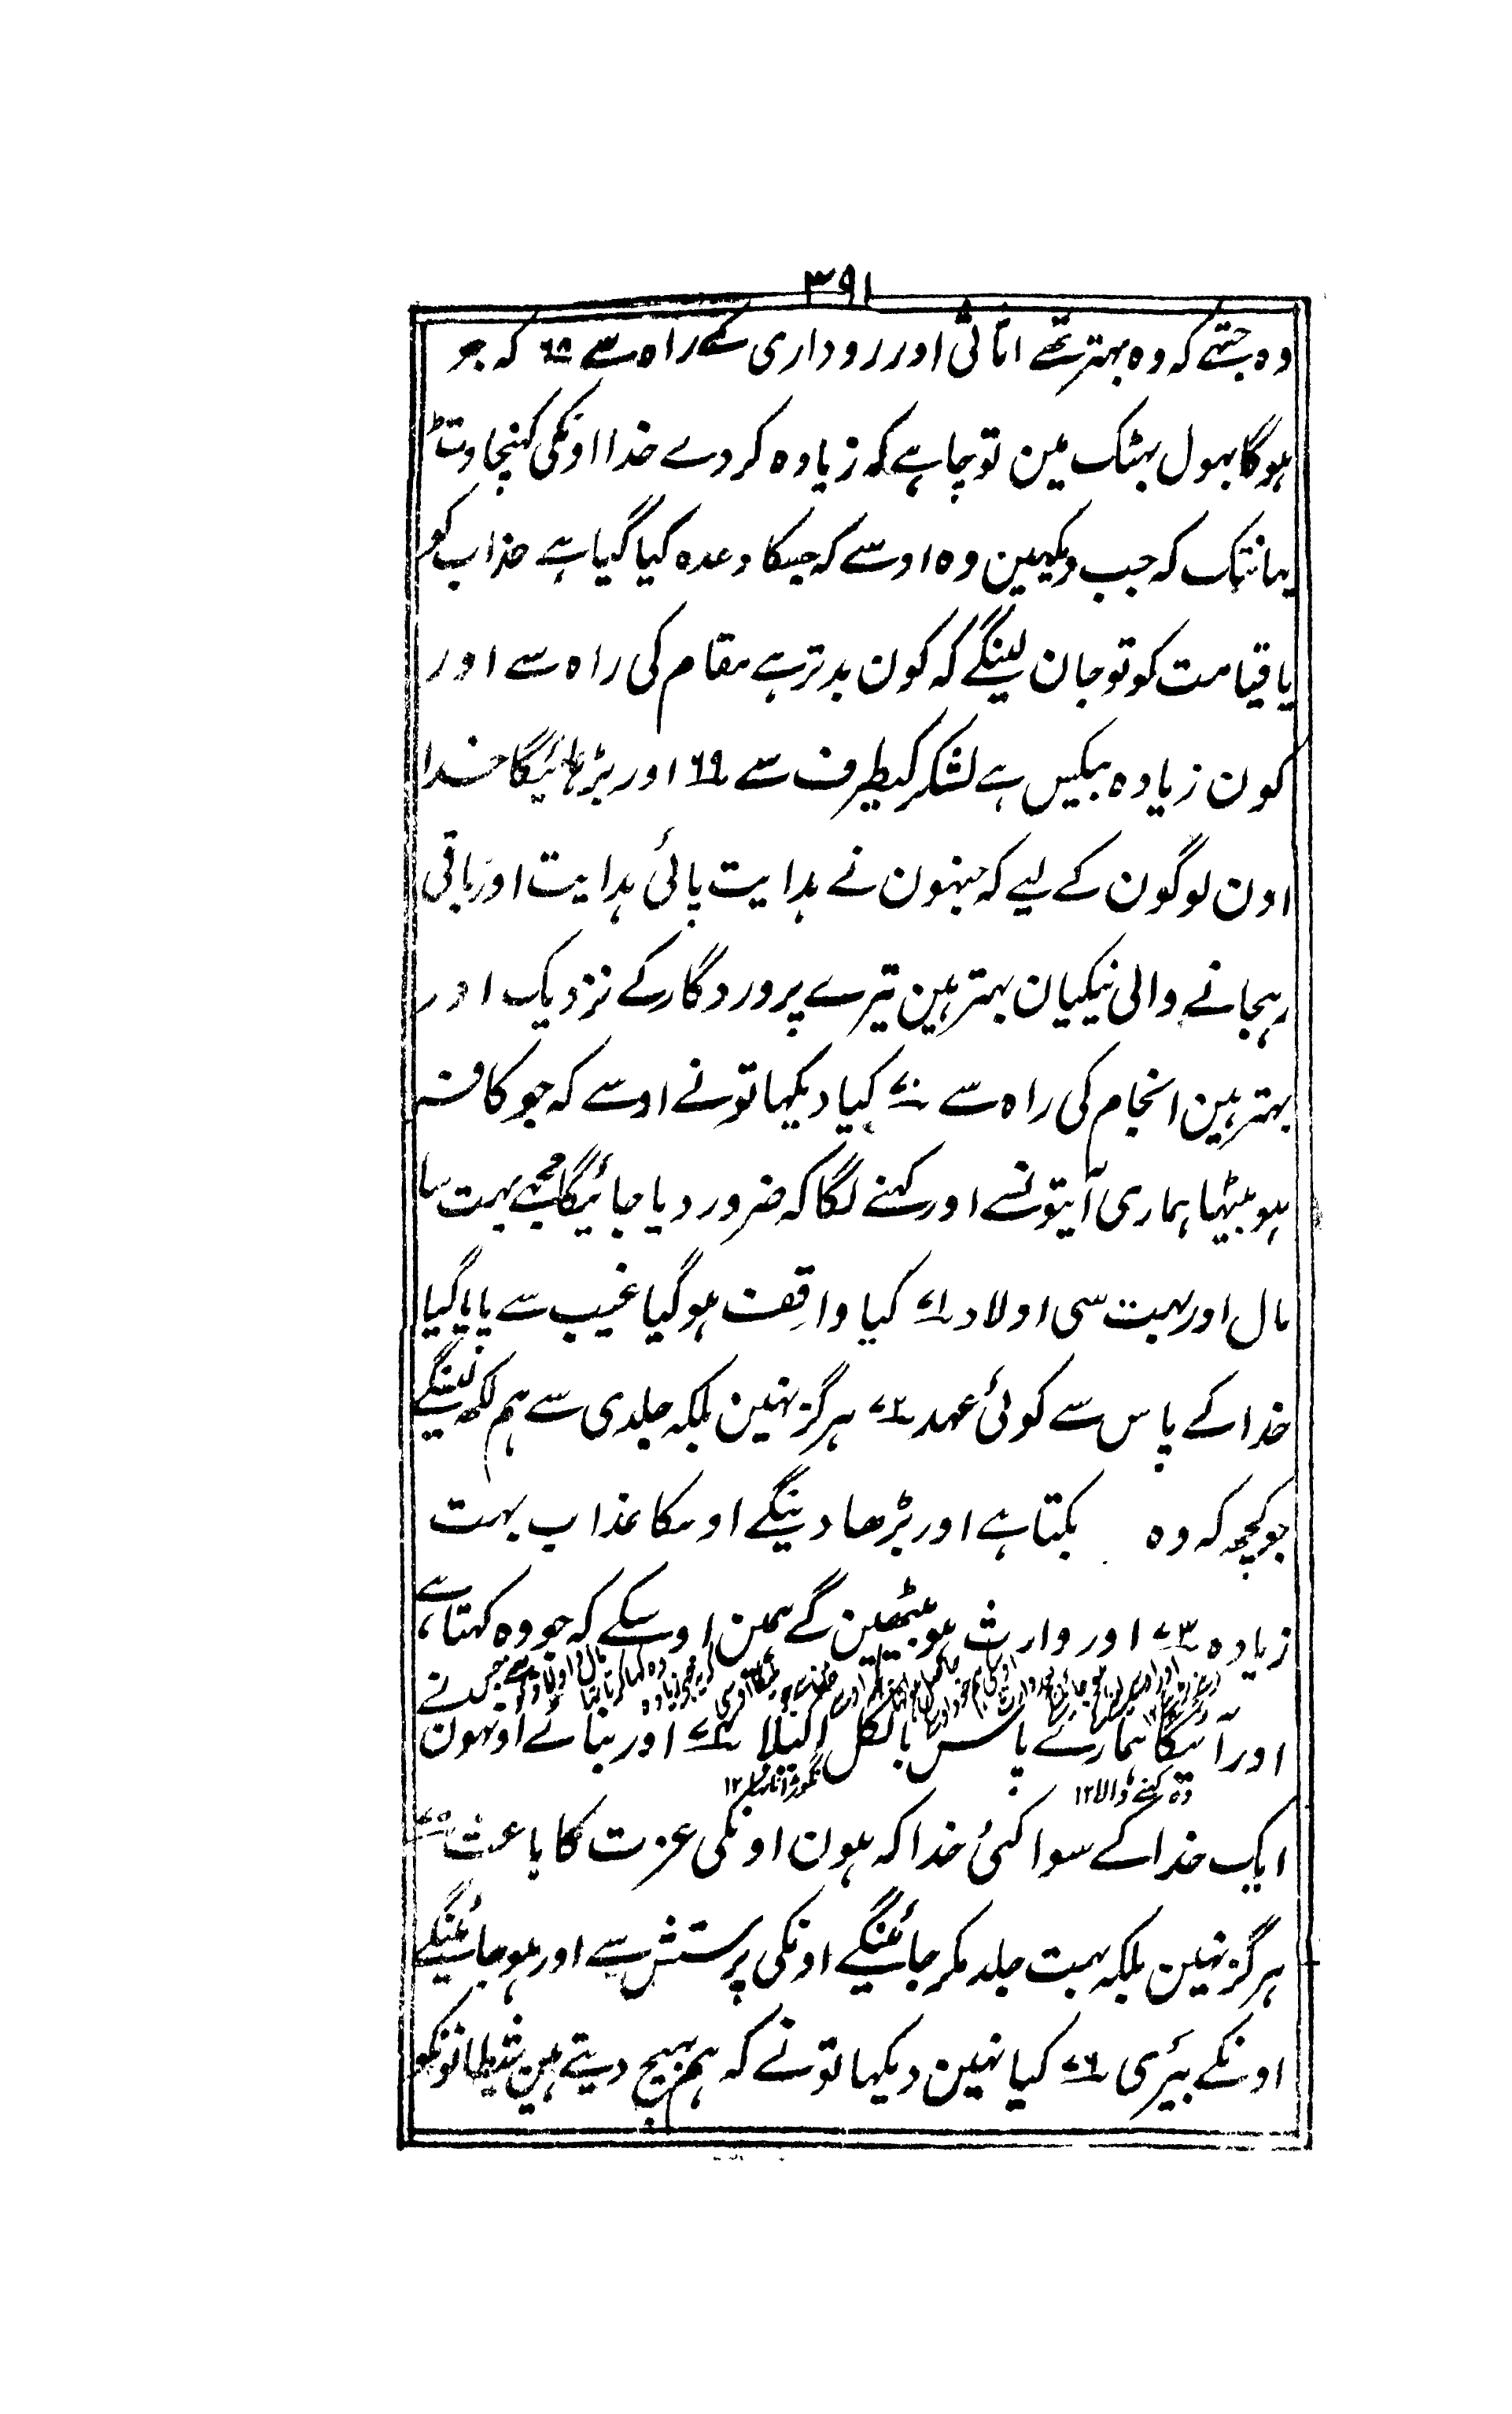 ٣٩١
وہ جتھے کہ وہ بہتر تھے اثاثی اور رو داری کے راہ سے ٦٨ کہ جو
ہوگا بہول بہٹک مین تو چاہے کہ زیادہ کر دے خدا اونکی کہنچاوٹ
یہانتک کہ جب دیکہین وہ اوسے کہ جسکا وعدہ کیا گیا ہے عذاب کو
یا قیامت کو تو جان لینگے کہ کون بدتر ہے مقام کی راہ سے اور
کون زیادہ بیکس ہے لشکر کیطرف سے ٦٩ اور بڑھائیگا خدا
اون لوگون کے لیے کہ جنہون نے ہدایت پائی ہدایت اور باقی
رہجانے والی نیکیان بہتر ہین تیرے پروردگار کے نزدیک اور
بہتر ہین انجام کی راہ سے ٧٠ کیا دیکہا تو نے اوسے کہ جو کافر
ہو بیٹہا ہماری آیتونسے اور کہنے لگا کہ ضرور دیا جائیگا مجھے بہت سا
مال اور بہت سی اولاد ٧١ کیا واقف ہوگیا غیب سے یا پا گیا
خدا کے پاس سے کوئی عہد ٧٢ ہرگز نہین بلکہ جلدی سے ہم لکھ لینگے
جو کچھ کہ وہ بکتا ہے اور بڑھا دینگے اوسکا عذاب بہت
زیادہ ٧٣ اور وارث ہو بیٹھین گے ہمین اوسکے کہ جو وہ کہتا ہے
اور آئیگا ہمارے پاس بالکل اکیلا ٧٤ اور بنائے اونہون نے
وہ کہنے والا ١٢
ایک خدا کے سوا کئی خدا کہ ہون اونکی عزت کا باعث ٧٥
ہرگز نہین بلکہ بہت جلد مکر جائینگے اونکی پرستش سے اور ہوجائینگے
اونکے بیری ٧٦ کیا نہین دیکہا تو نے کہ ہم بہیج دیتے ہین شیطانونکو